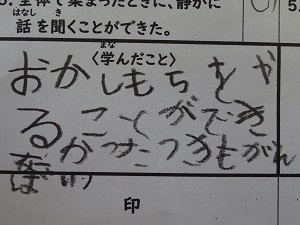 5. 全体で集まったときに、静かに
話を聞くことができた。
はなし き
5.
〈学んだこと〉
まな
おかしもちをや
ることができ
かったつぎもがん
ば
印